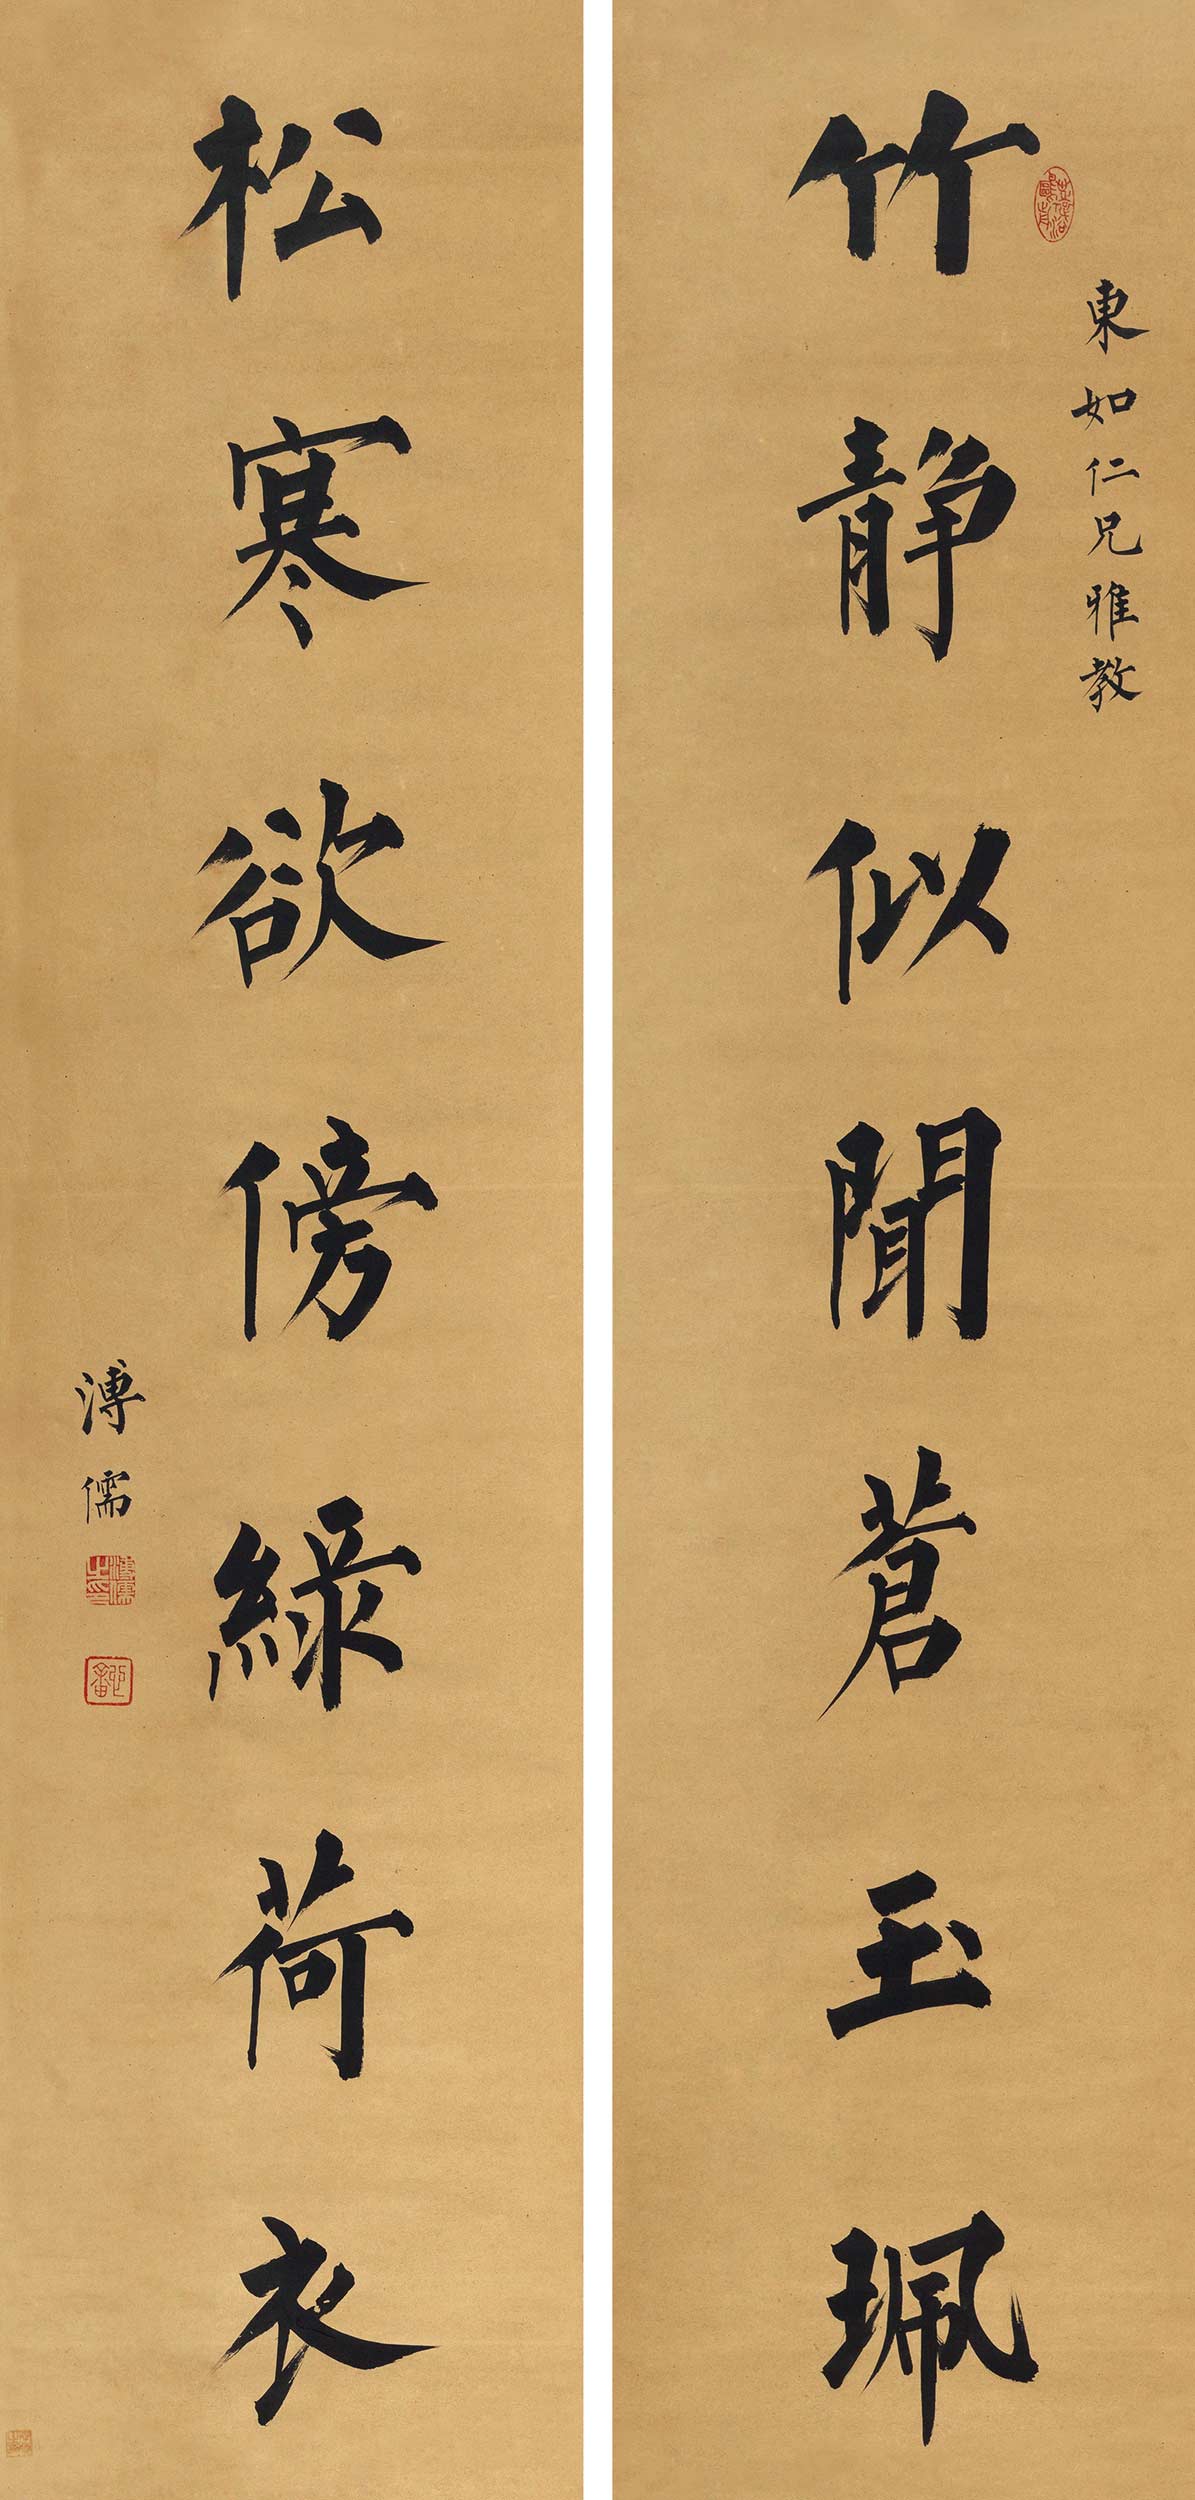 東如仁兄雅教
竹静似聞蒼玉珮
松寒欲傍綠荷衣
溥儒
溥儒之印